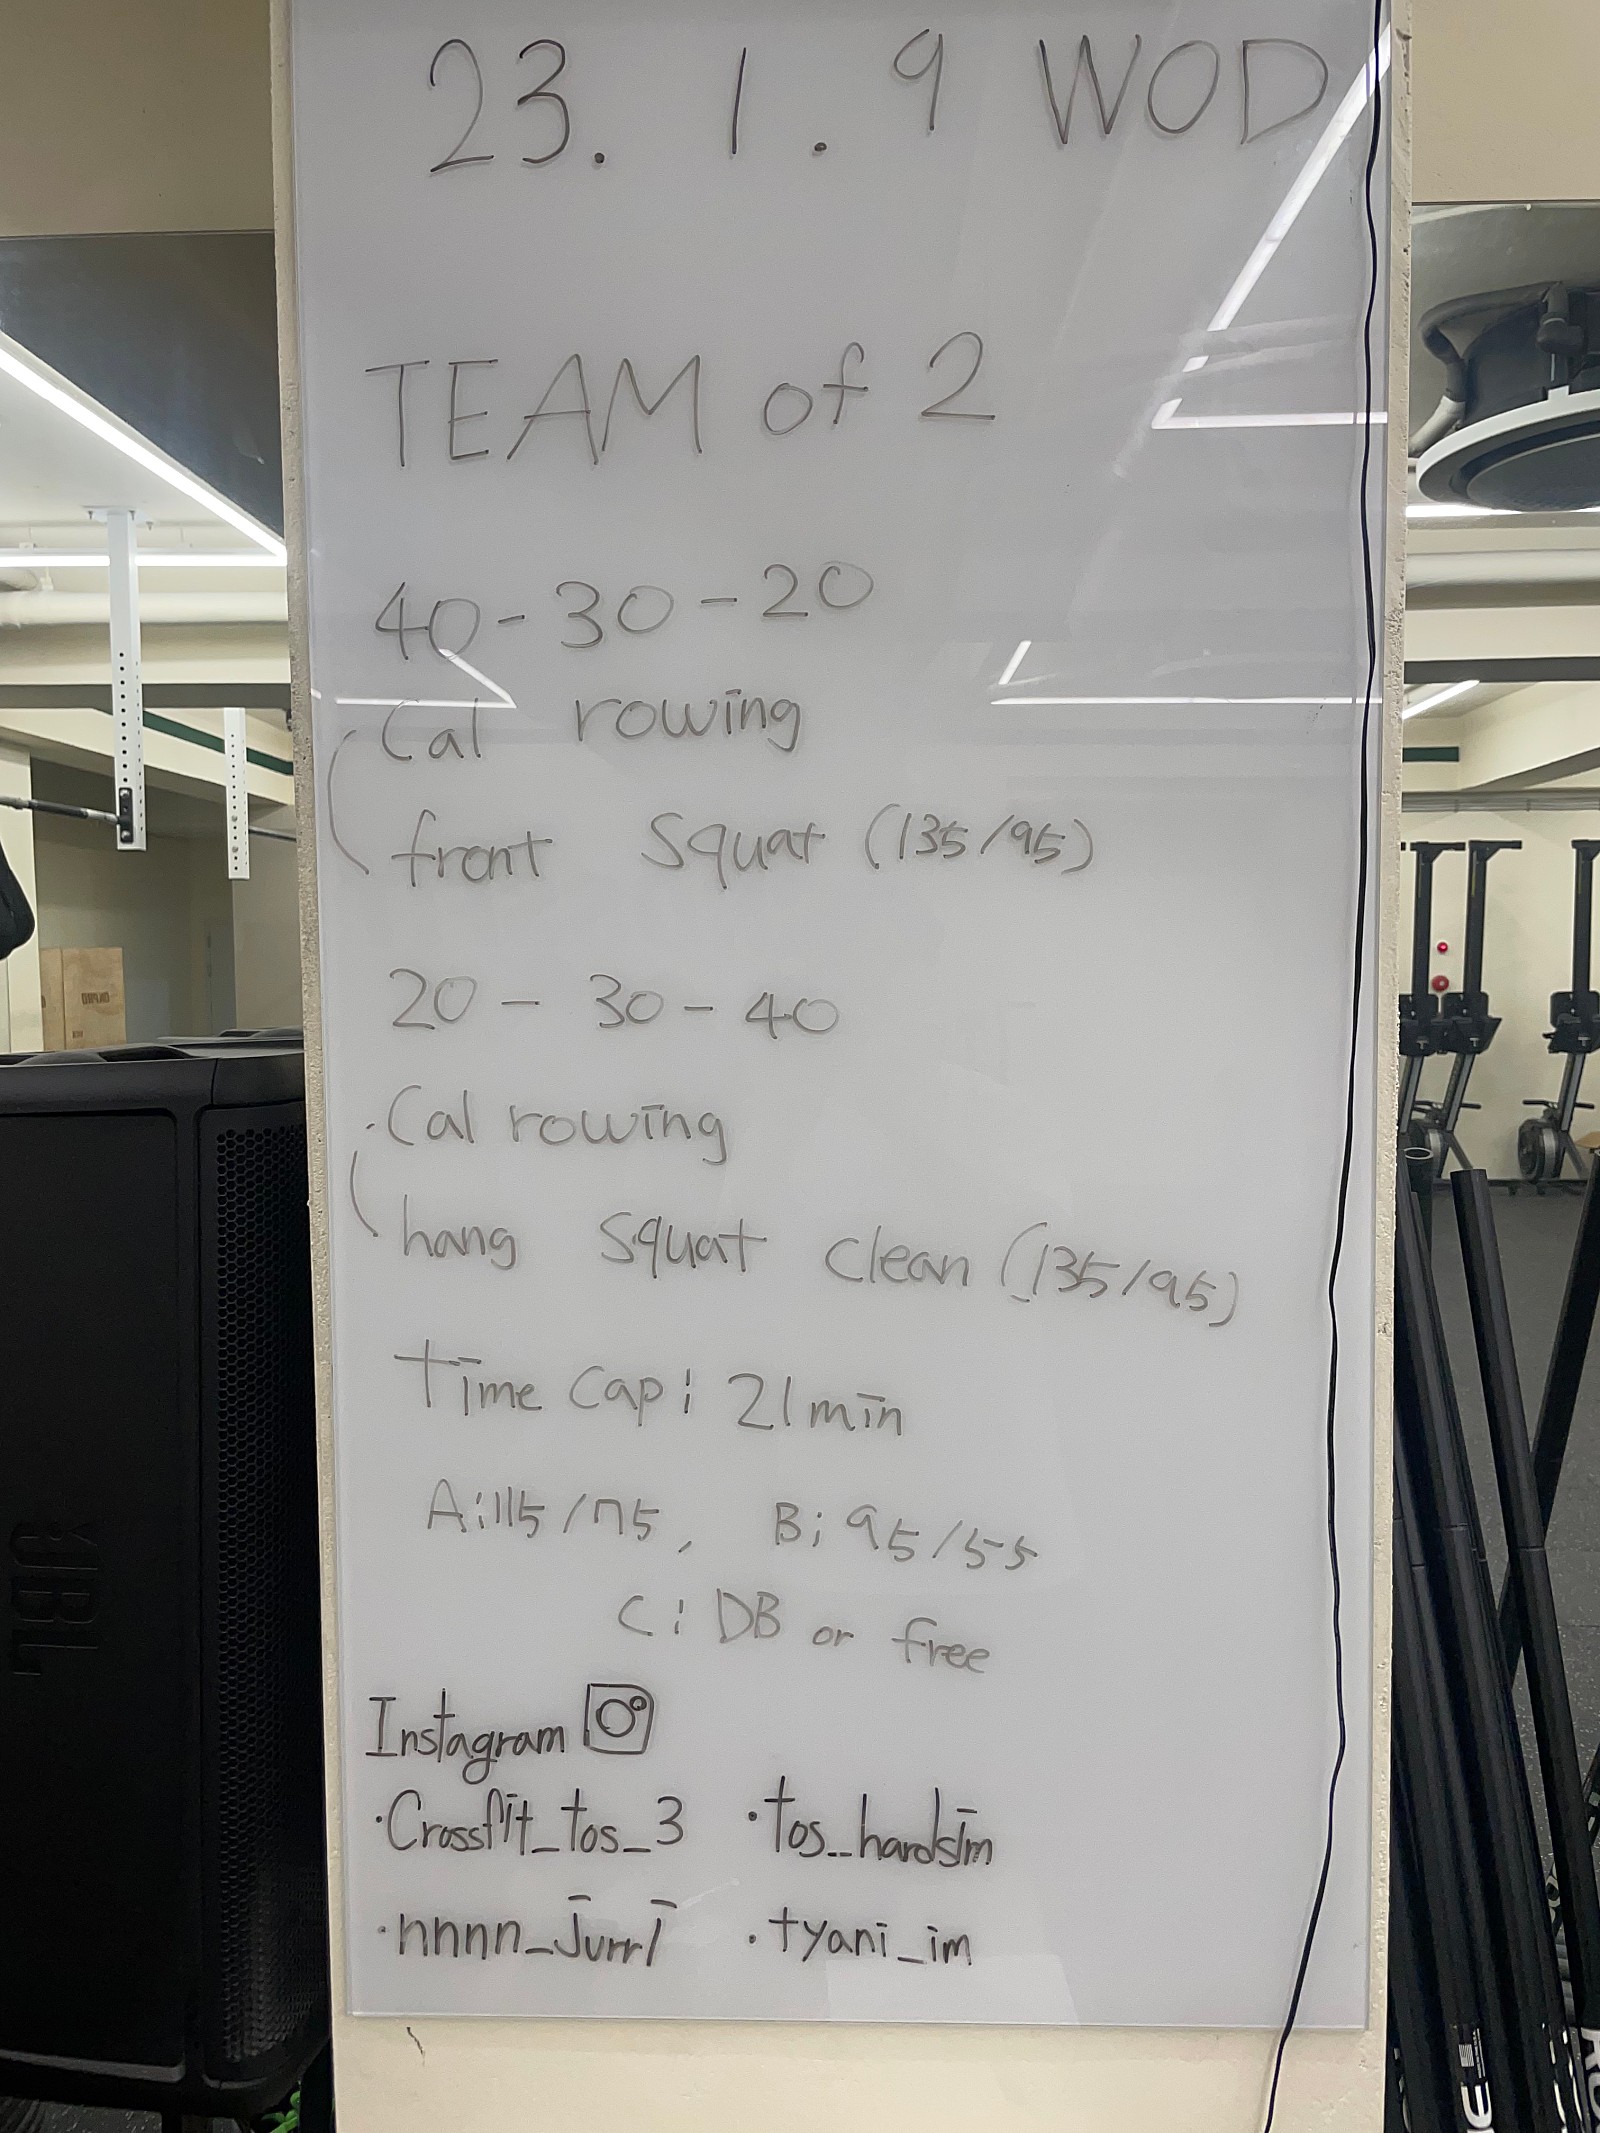 23. 1. 9 WOD
TEAM of 2
40-30-20
Cal rowing
front squat (135/95)
20-30-40
Cal rowing
hang squat clean (135/95)
Time Cap: 21min
A:115/75, B: 95/55
C: DB or free
Instagram
·Crossfit_tos_3 ·tos_hardslim
·nnnn_jurri ·tyani_im
JBL